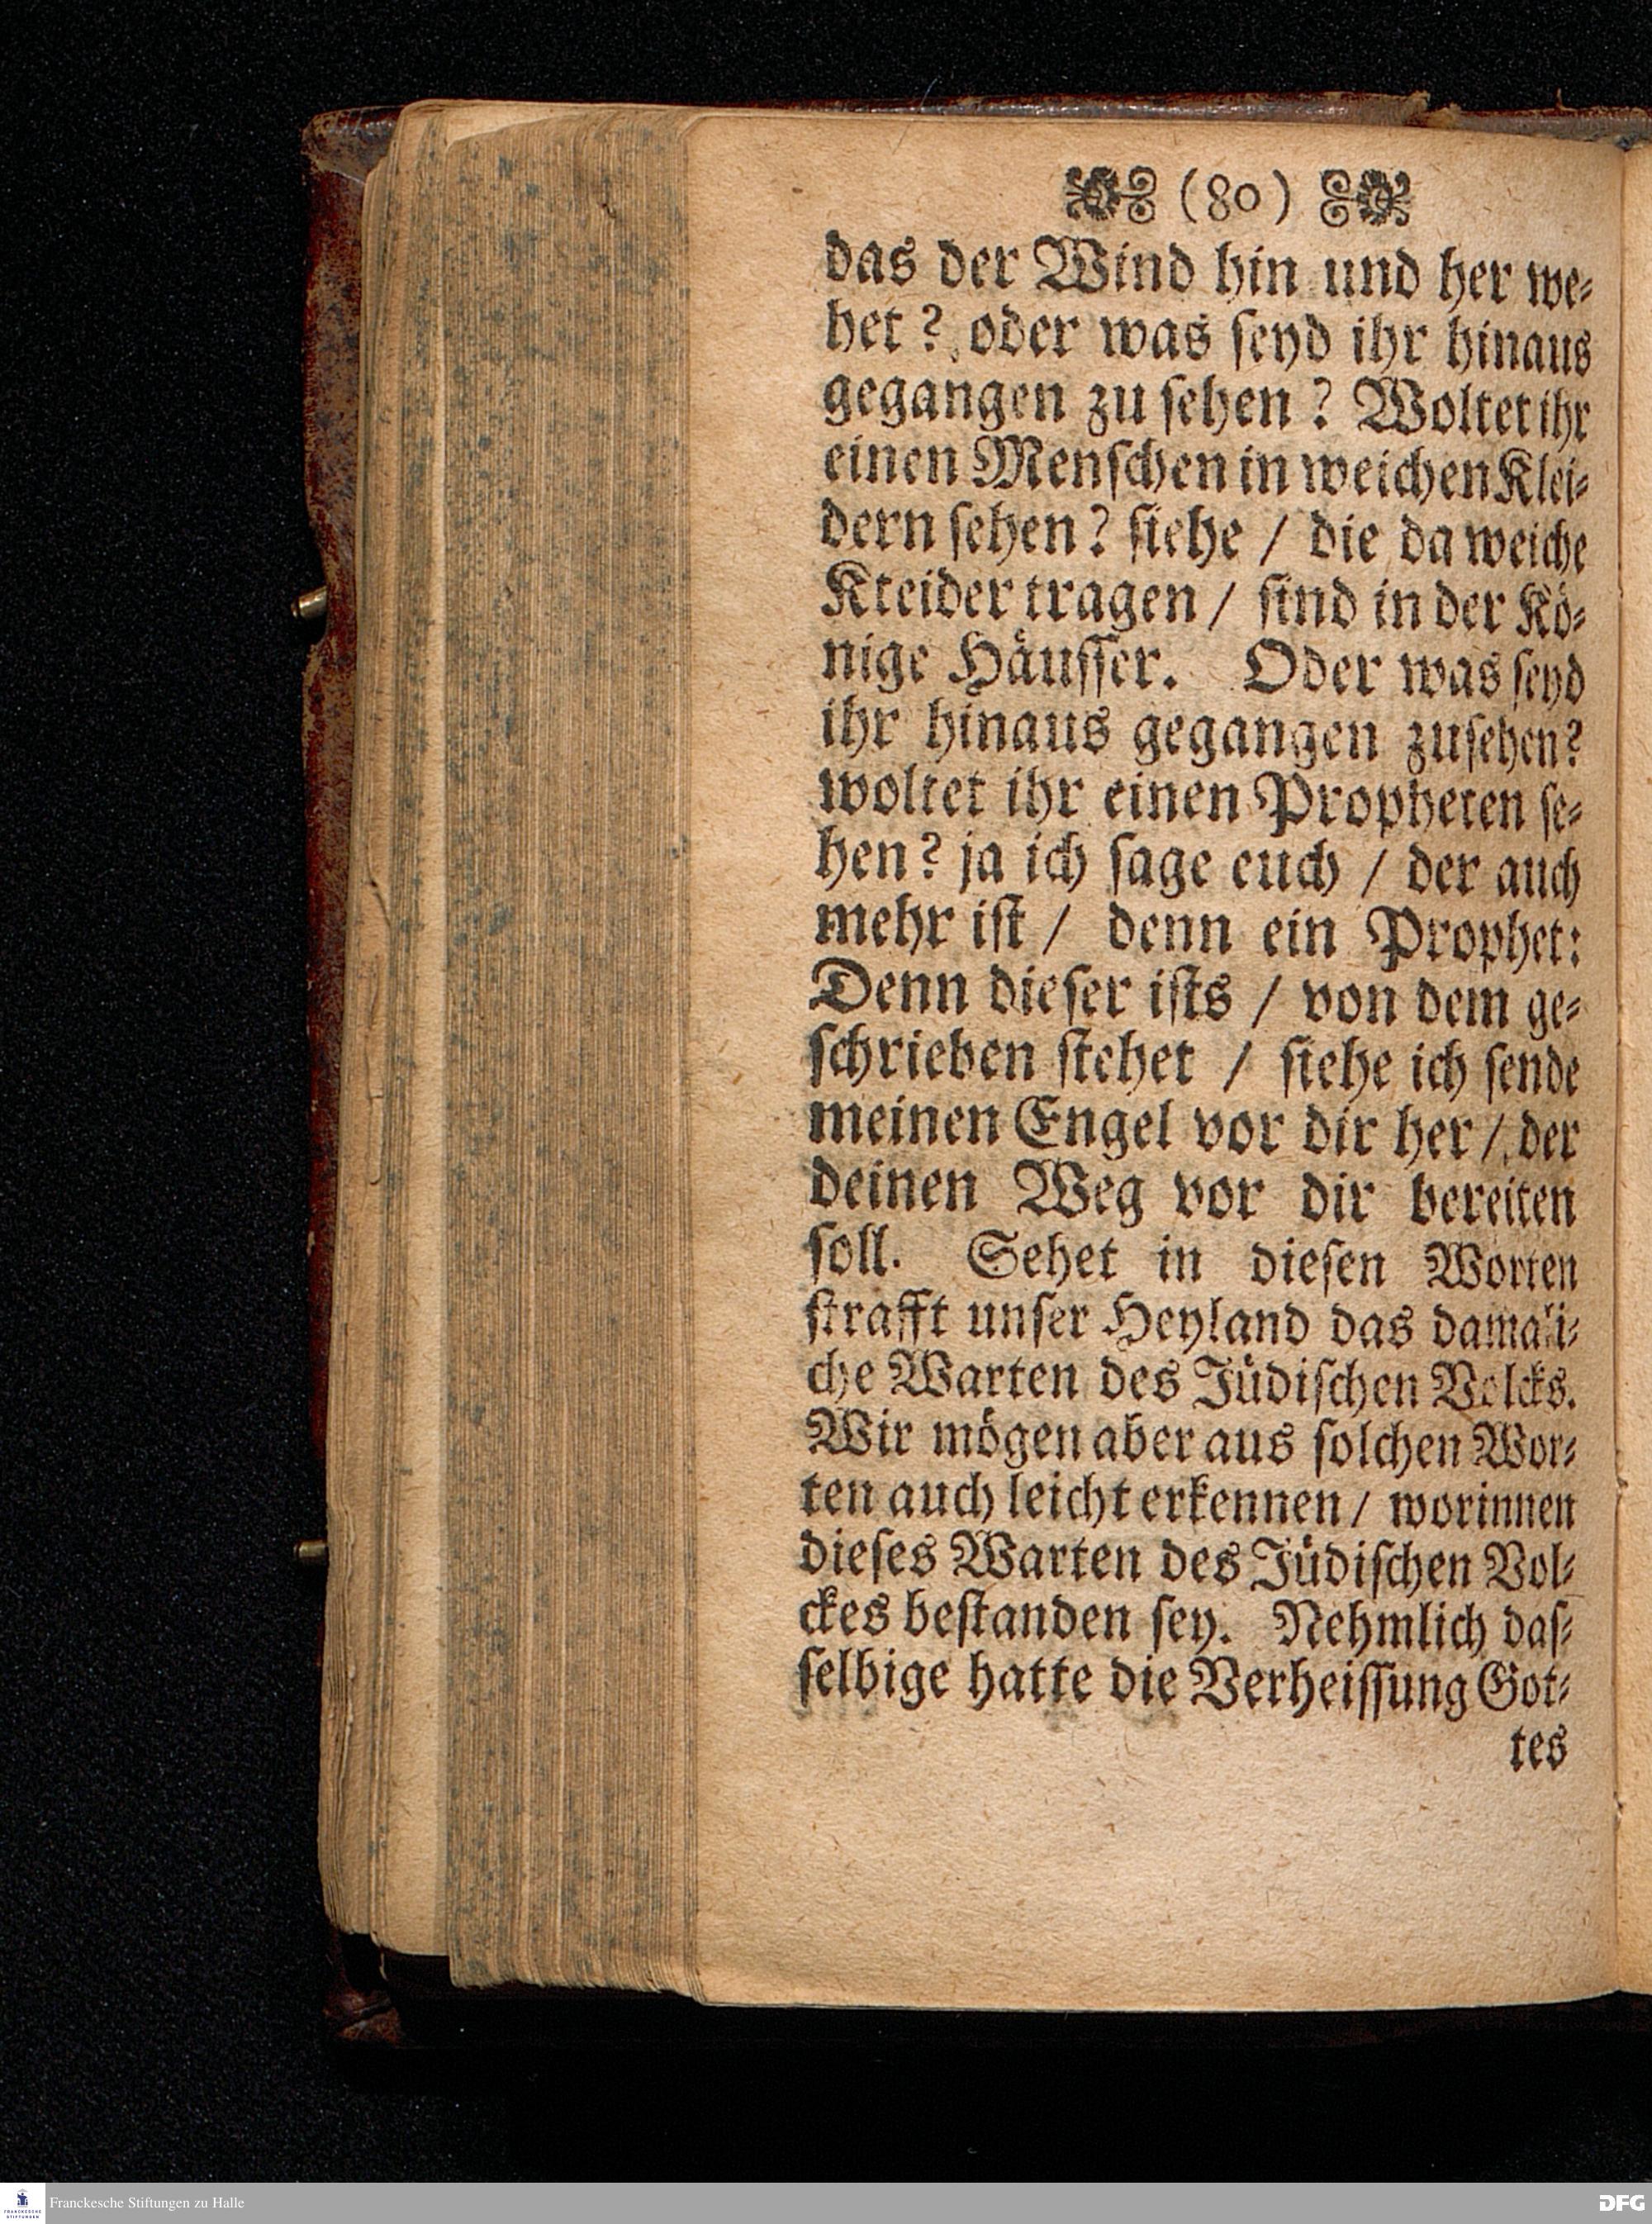 (80)
das der Wind hin und her we-
het? oder was seyd ihr hinaus
gegangen zu sehen? Woltet ihr
einen Menschen in weichen Klei-
dern sehen? siehe / die da weiche
Kleider tragen / sind in der Kö-
nige Häusser. Oder was seyd
ihr hinaus gegangen zusehen?
woltet ihr einen Propheten se-
hen? ja ich sage euch / der auch
mehr ist / denn ein Prophet:
Denn dieser ists / von dem ge-
schrieben stehet / siehe ich sende
meinen Engel vor dir her / der
deinen Weg vor dir bereiten
soll. Sehet in diesen Worten
strafft unser Heyland das damali-
che Warten des Jüdischen Volcks.
Wir mögen aber aus solchen Wor-
ten auch leicht erkennen / worinnen
dieses Warten des Jüdischen Vol-
ckes bestanden sey. Nehmlich das-
selbige hatte die Verheissung Got-
tes
Franckesche Stiftungen zu Halle
DFG